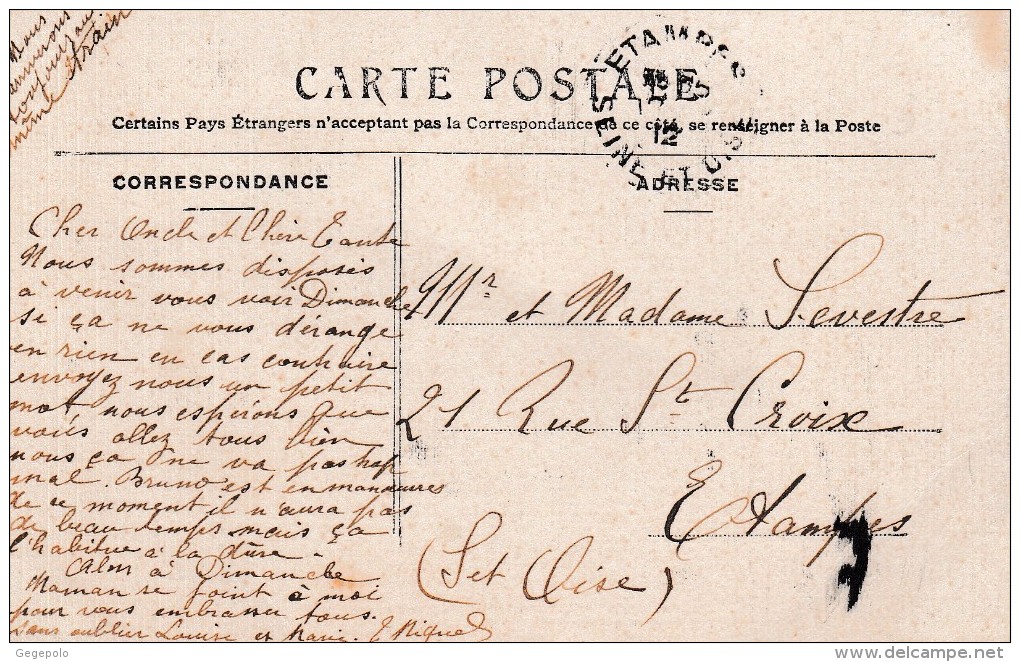 Nous
arriverons
toujours au
même train
CARTE POSTALE
Certains Pays Étrangers n'acceptant pas la Correspondance de ce côté, se renseigner à la Poste
ETAMPES
SEINE ET OISE
12
CORRESPONDANCE
Cher Oncle et Chère Tante
Nous sommes disposés
à venir vous voir Dimanche
si ça ne vous dérange
en rien en cas contraire
envoyez nous un petit
mot, nous espérons que
vous allez tous bien
nous ça ne va pas trop
mal. Bruno est en manœuvres
de ce moment il n'aura pas
de beau temps mais ça
l'habitue à la dure.
Alors à Dimanche
Maman se joint à moi
pour vous embrasser tous.
sans oublier Louise et Marie. E Riquel
ADRESSE
Mr et Madame Sevestre
21 Rue St Croix
Etampes
(S et Oise)
Gegepolo
delcampe.net